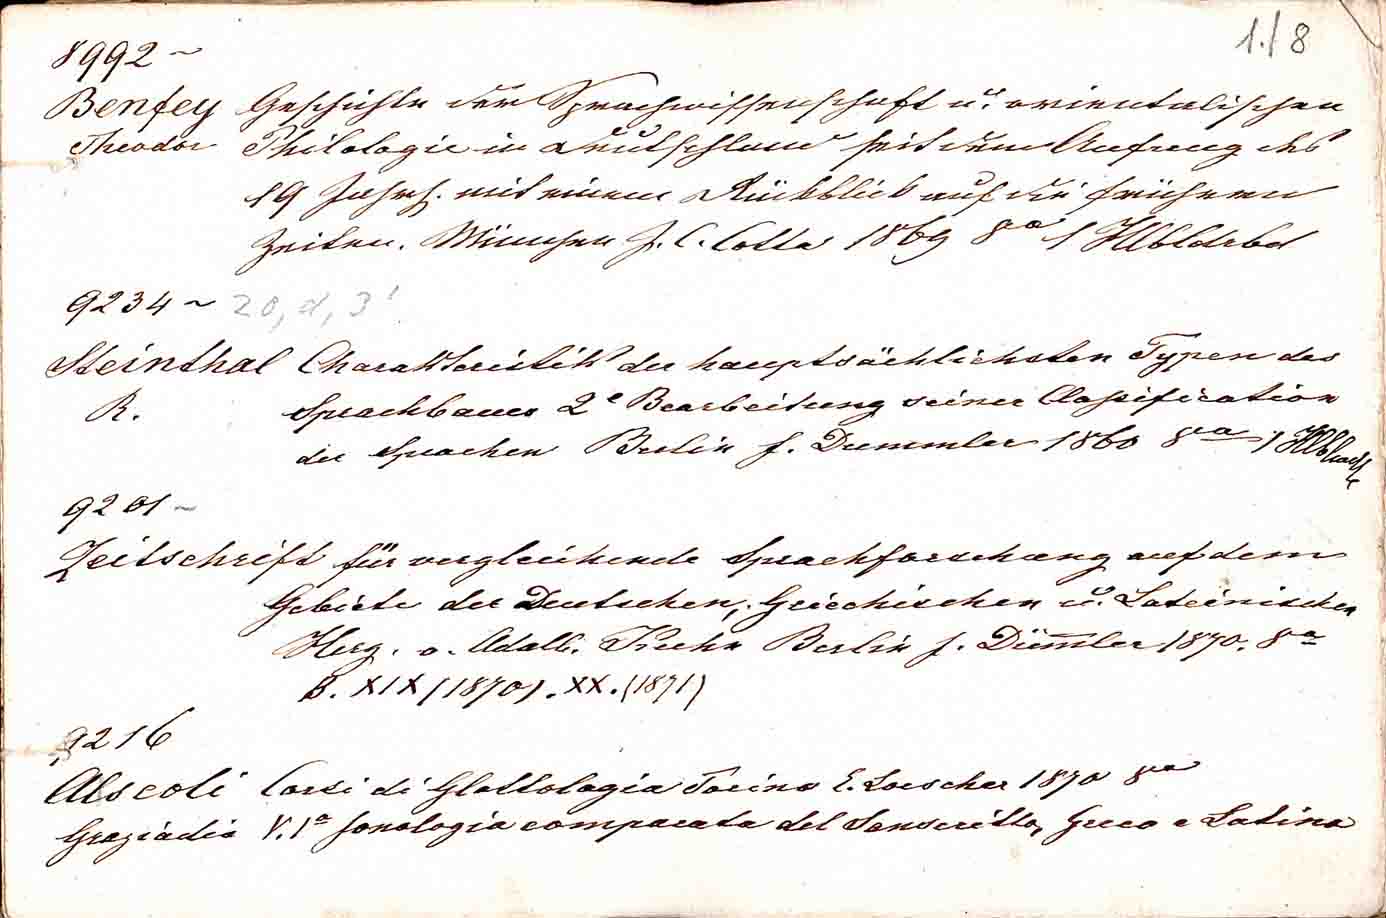 1./8
8992 ~
Benfey Geschichte der Sprachwissenschaft u. orientalischen
Theodor Philologie in Deutschland seit dem Anfang des
19 Jahrh. mit einem Rückblick auf die früheren
Zeiten. München J. C. Cotta 1869 8va 1 Hlbldrbd
9234 ~ 20, d, 3'
Steinthal Charakteristik der hauptsächlichsten Typen des
R. Sprachbaues 2e Bearbeitung seiner Classification
der Sprachen Berlin f. Dummler 1860 8va 1
9201 ~
Zeitschrift für vergleichende Sprachforschung auf dem
Gebiete der Deutschen, Griechischen u. Lateinischen
Herg. v. Adalb. Kuhn Berlin f. Dümler 1870. 8va
B. XIX (1870). XX. (1871)
9216
Alscoli Corsi di Glottologia Torino E. Loescher 1870 8va
Graziadio V. 1a fonologia comparata del Sanscritto, Greco e Latino